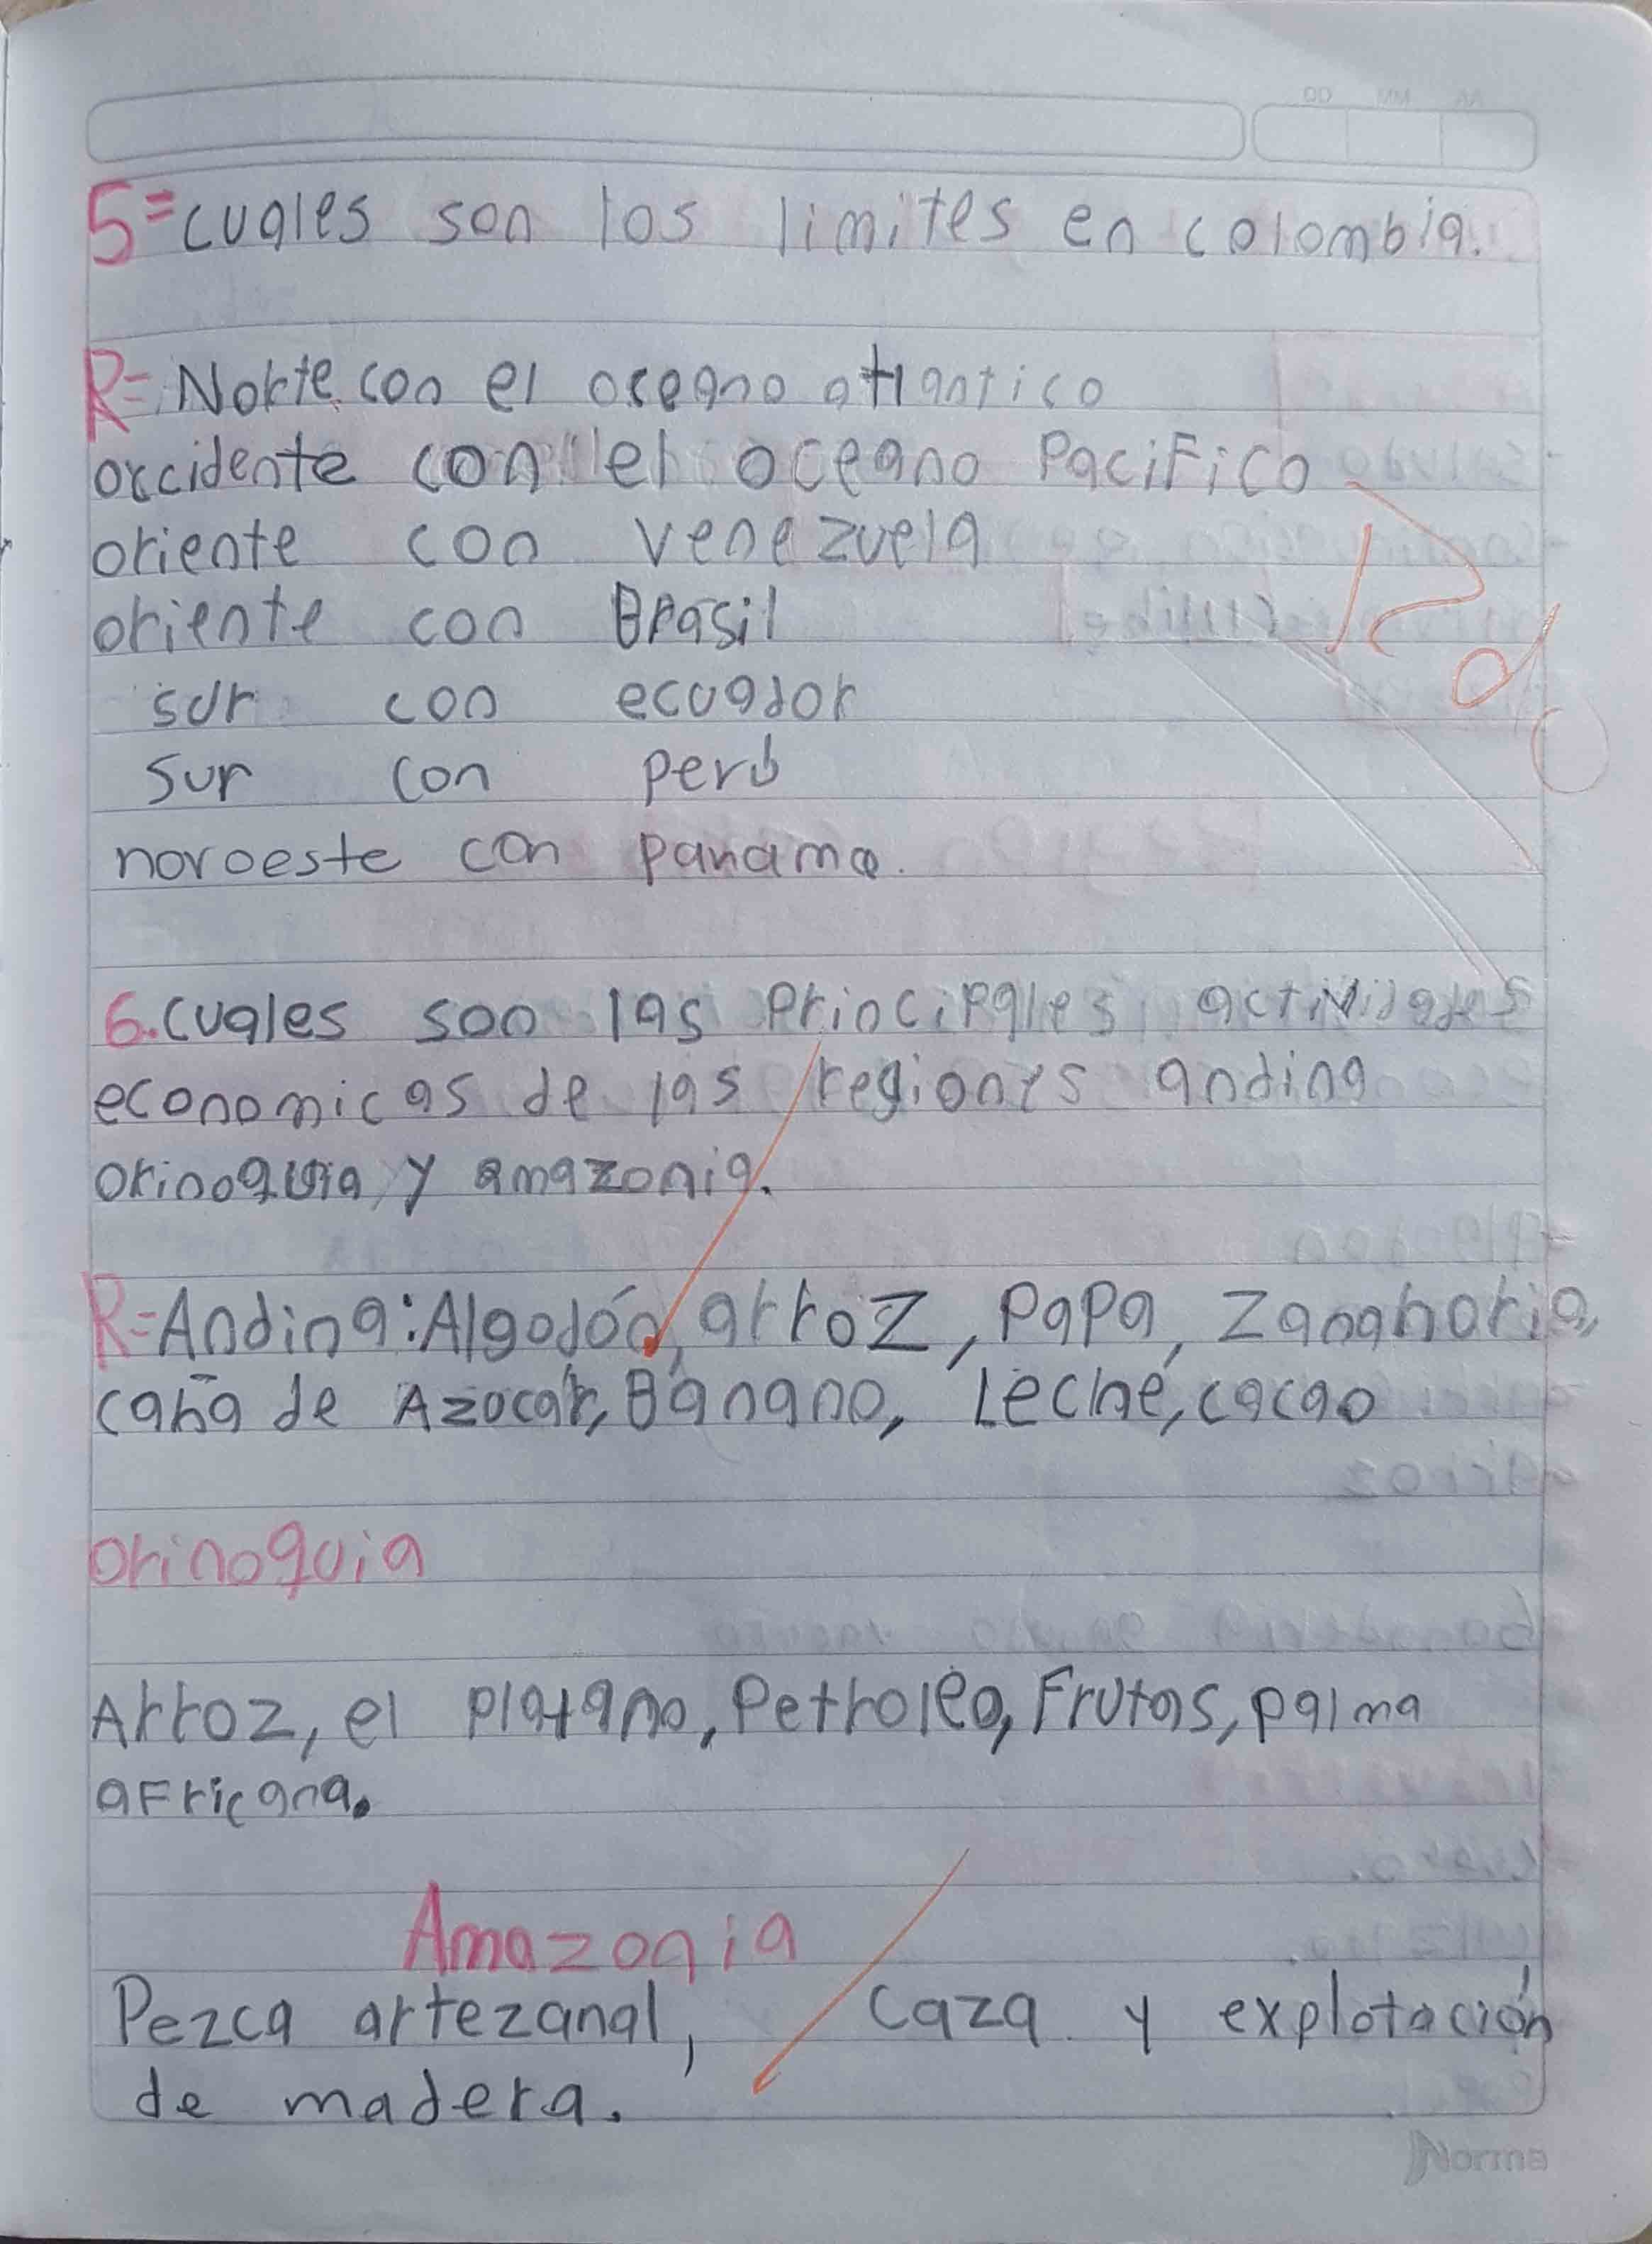 5=cuales son los limites en colombia.
R= Norte con el oseano atlantico
occidente con el oceano Pacifico
oriente con venezuela
oriente con Brasil
sur con ecuador
sur con perú
noroeste con panama.
6.cuales son las principales actividades
economicas de las regiones andina
orinoquia y amazonia.
R=Andina:Algodón, arroz, papa, zanahoria,
caña de Azocar, Banano, Leche, cacao
orinoquia
Arroz, el platano, Petroleo, Frutas, palma
africana.
Amazonia
Pezca artezanal, caza y explotación
de madera.
Norma